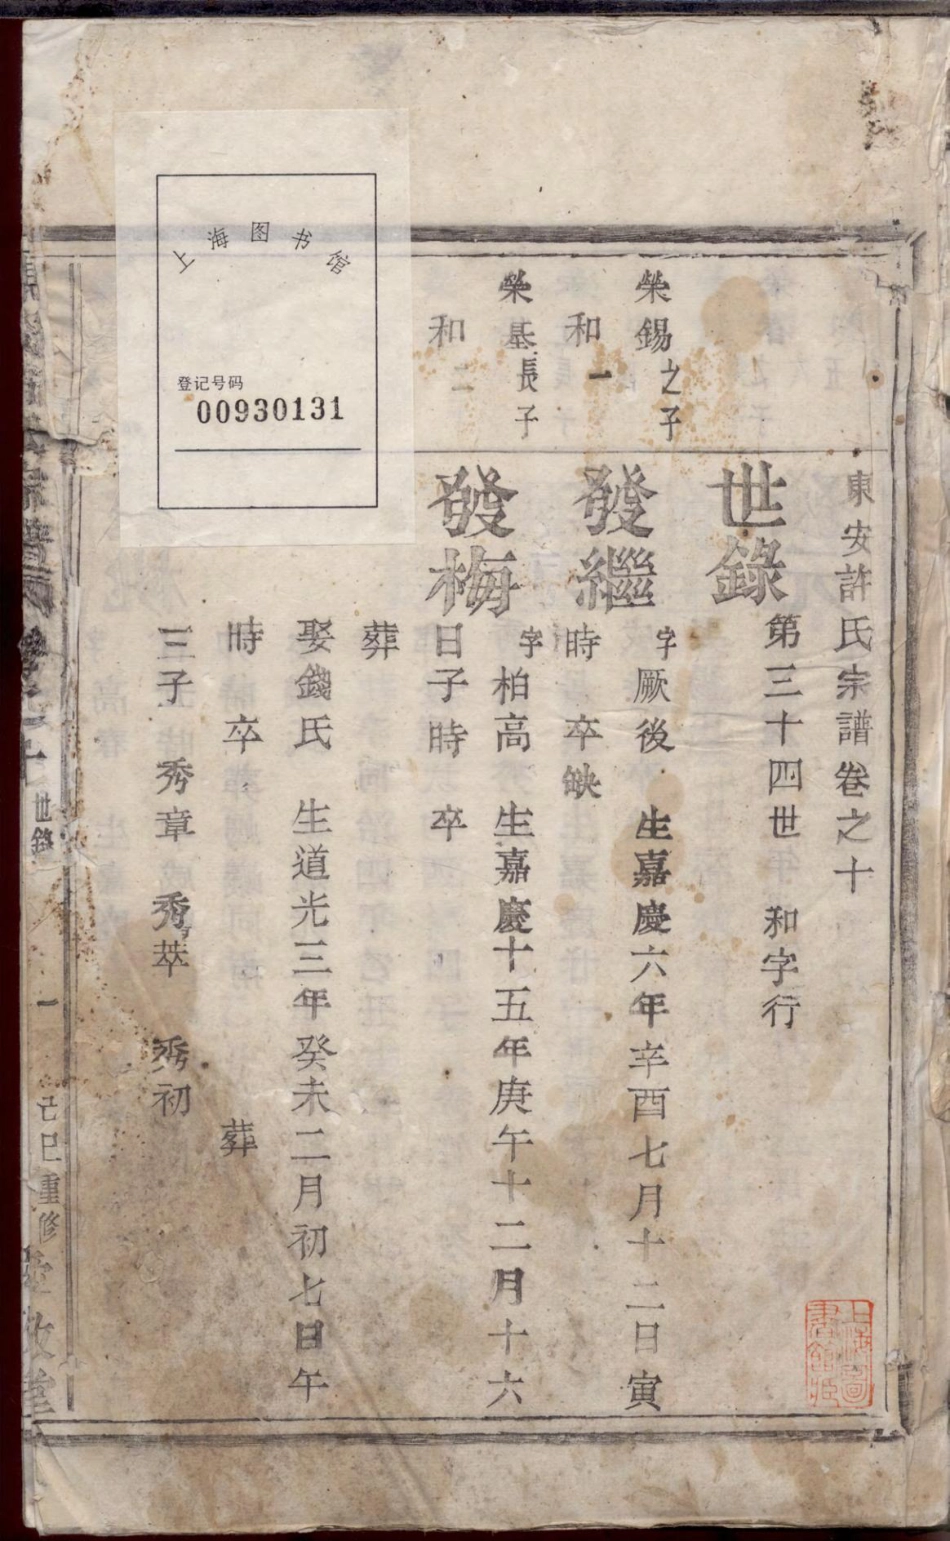 東安許氏宗譜卷之十
世錄 第三十四世 和字行
榮錫之子
和一
發繼 字厥後 生嘉慶六年辛酉七月十二日寅
時 卒缺
榮基長子
和二
發梅 字柏高 生嘉慶十五年庚午十二月十六
日子時 卒
葬
娶錢氏 生道光三年癸未二月初七日午
時 卒 葬
三子 秀章 秀萃 秀初
世錄
一
己巳重修
上海图书馆
登记号码
00930131
上海圖書館藏